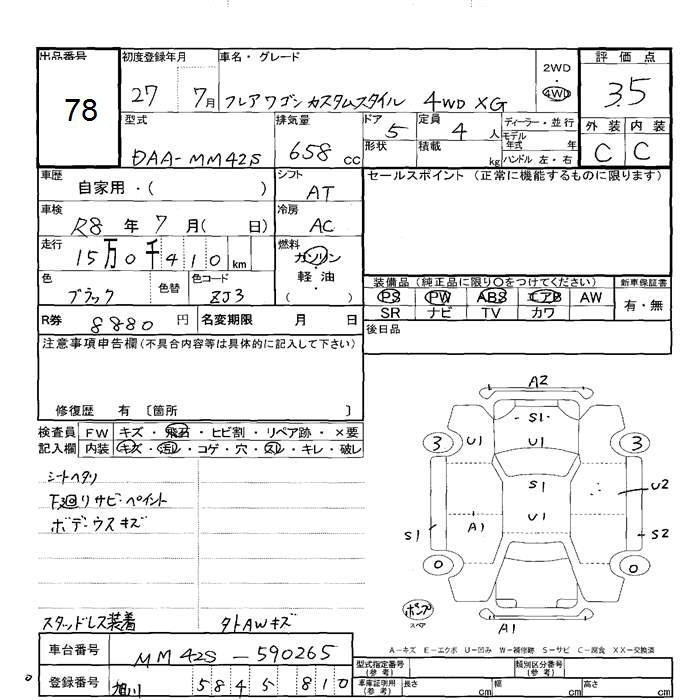 出品番号 78
初度登録年月 27 7月
車名・グレード フレアワゴン カスタムスタイル 4WD XG
2WD
4WD
評価点 3.5
外装 内装
C C
型式 DAA-MM42S
排気量 658 cc
ドア 5
定員 4 人
形状 積載 kg
ディーラー・並行
モデル年式 年
ハンドル 左・右
車歴 自家用・( )
シフト AT
車検 R8 年 7 月( 日)
冷房 AC
走行 15万0千410 km
燃料 ガソリン・軽・油 ( )
色 ブラック 色替
色コード ZJ3
R券 8880 円
名変期限 月 日
セールスポイント(正常に機能するものに限ります)
装備品(純正品に限り○をつけてください)
新車保証書
PS PW ABS エアB AW
有・無
SR ナビ TV カワ
後日品
注意事項申告欄(不具合内容等は具体的に記入して下さい)
修復歴 有 〔箇所 〕
検査員記入欄
FW キズ・飛石・ヒビ割・リペア跡・×要
内装 キズ・汚レ・コゲ・穴・スレ・キレ・破レ
シートヘタリ
下廻リサビ・ペイント
ボデーウスキズ
スタッドレス装着
タトAWキズ
A2
S1
3 U1 U1 3
S1
U2
U1
S1 A1 S2
0 0
ポンプ
スペア
A1
A-キズ E-エクボ U-凹み W-補修跡 S-サビ C-腐食 XX-交換済
車台番号 MM42S-590265
登録番号 旭川 5845 810
型式指定番号(参考)
類別区分番号(参考)
車庫証明用(参考) 長さ cm 幅 cm 高さ cm